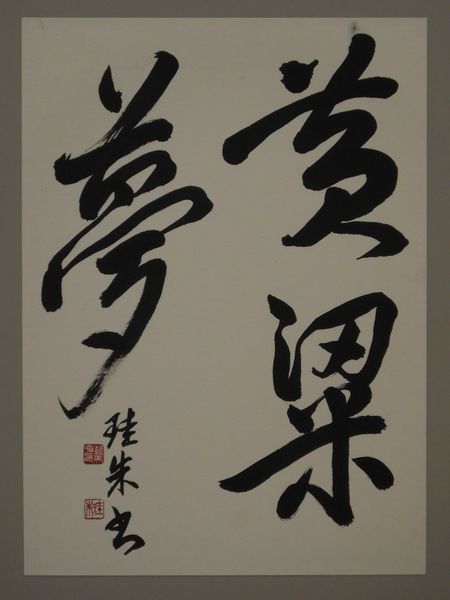 黄粱
夢
珪朱书